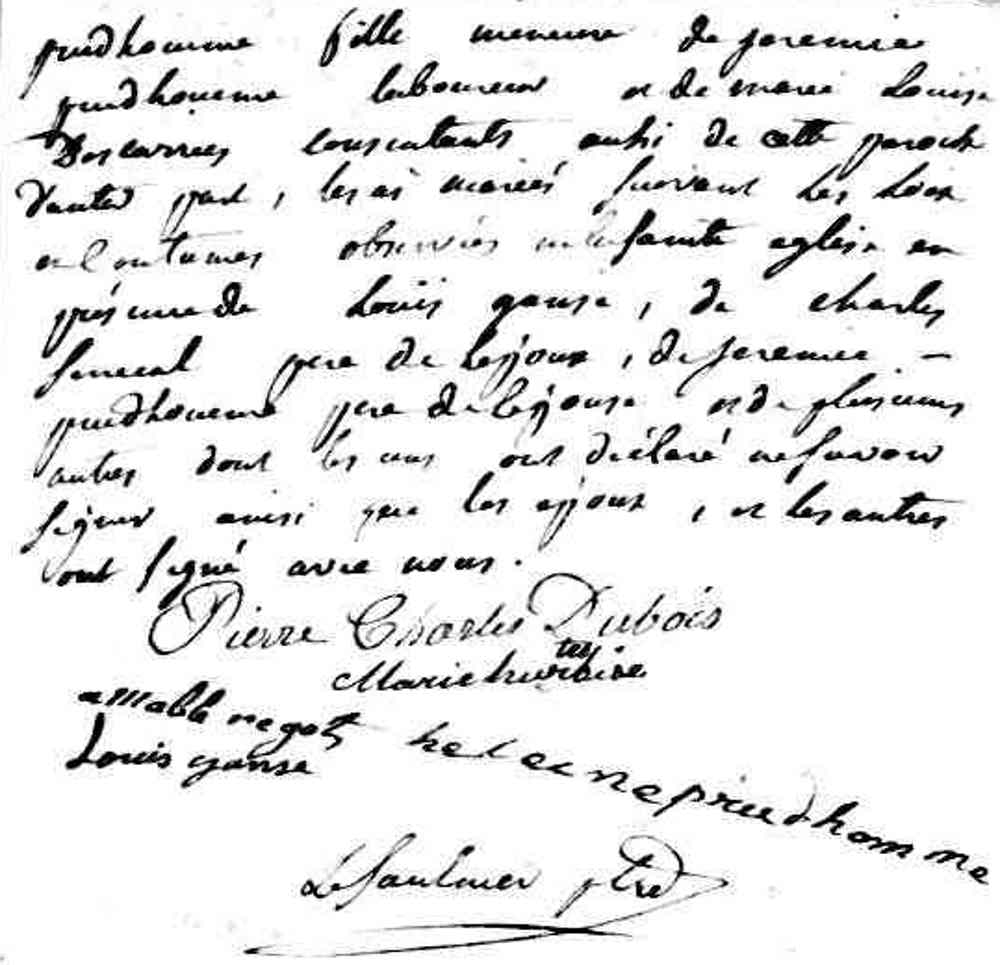 prudhomme fille meneure de Jeremie
prudhomme laboureur et de marie Louise
Descarries consentants aussi de cette paroisse
d'autre part, les ai mariés suivant les Loix
et Coutumes observées en la sainte eglise en
présence de Louis ganse, de charles
Senecal pere de l'epoux, de Jeremie —
prudhomme pere de l'epouse et de plusieurs
autres dont les uns ont déclaré ne savoir
signer ainsi que les epoux, et les autres
ont signé avec nous.
Pierre Charles Dubois
Marie hurtbise
amable negots
Louis ganse
heleene prudhomme
LeSaulnier ptre